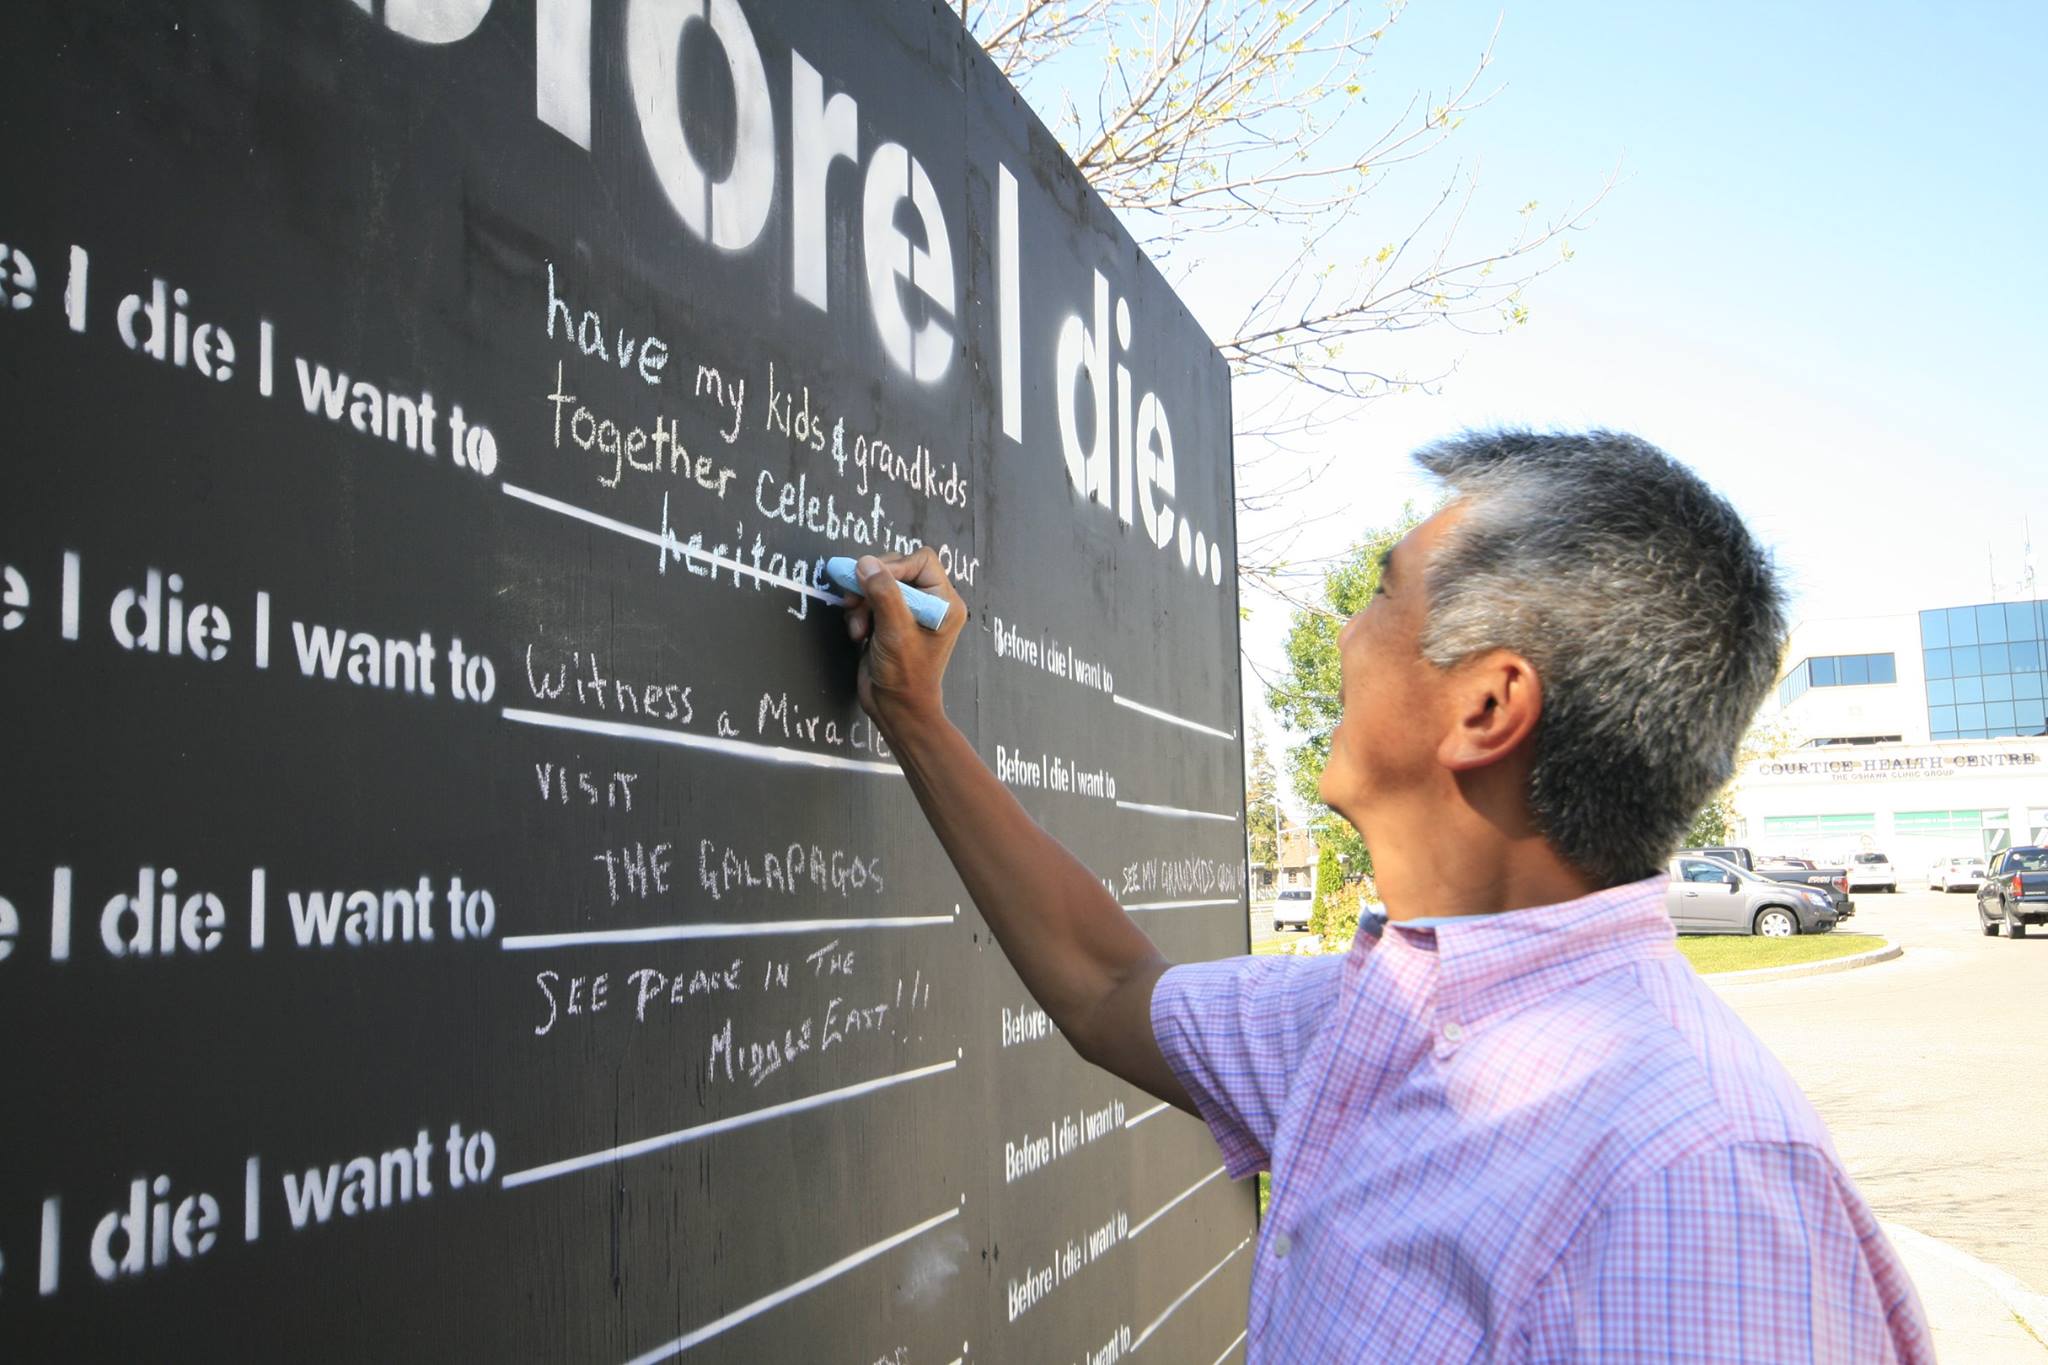 before I die...
e I die I want to
have my kids & grandkids
together celebrating our
heritage
e I die I want to
Witness a Miracle
e I die I want to
VISIT
THE GALAPAGOS
SEE PEACE IN THE
MIDDLE EAST!!!
I die I want to
Before I die I want to
Before I die I want to
SEE MY GRANDKIDS GROW UP
Before I
Before I die I want to
Before I die I want to
want to
COURTICE HEALTH CENTRE
THE OSHAWA CLINIC GROUP